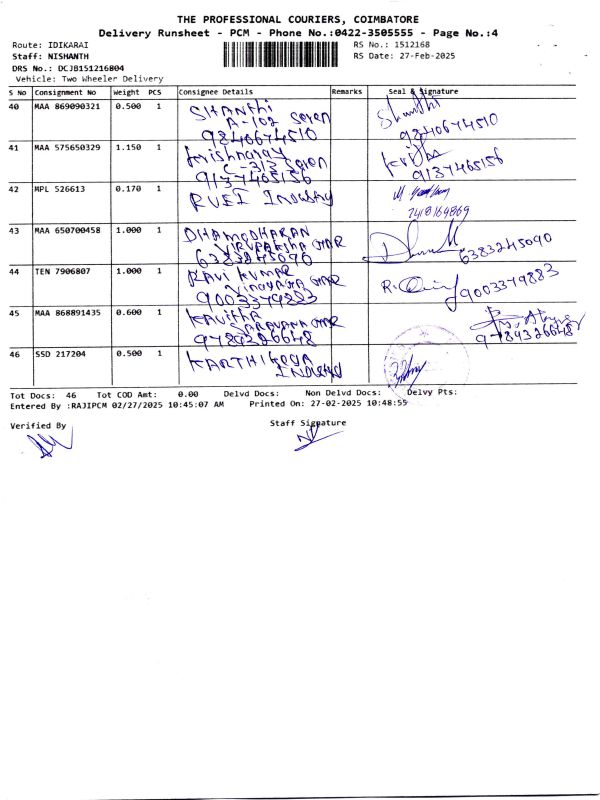 THE PROFESSIONAL COURIERS, COIMBATORE
Delivery Runsheet - PCM - Phone No.:0422-3505555 - Page No.:4
Route: IDIKARAI RS No.: 1512168
Staff: NISHANTH RS Date: 27-Feb-2025
DRS No.: DCJB151216804
Vehicle: Two Wheeler Delivery
S No Consignment No Weight PCS Consignee Details Remarks Seal & Signature
40 MAA 869090321 0.500 1 SHANTHI Shanthi
A-102 Seven
9840674510 9840674510
41 MAA 575650329 1.150 1 Krishnaraj
C-313 Seven
9137465156 9137465156
42 MPL 526613 0.170 1
43 MAA 650700458 1.000 1 DHAMODHARAN
6383245090 6383245090
44 TEN 7906807 1.000 1 RAVI KUMAR
Vinayaga
9003379883 9003379883
45 MAA 868891435 0.600 1 KAVITHA
SARAVANA
9789326648 9789326648
46 SSD 217204 0.500 1
Tot Docs: 46 Tot COD Amt: 0.00 Delvd Docs: Non Delvd Docs: Delvy Pts:
Entered By :RAJIPCM 02/27/2025 10:45:07 AM Printed On: 27-02-2025 10:48:55
Verified By Staff Signature